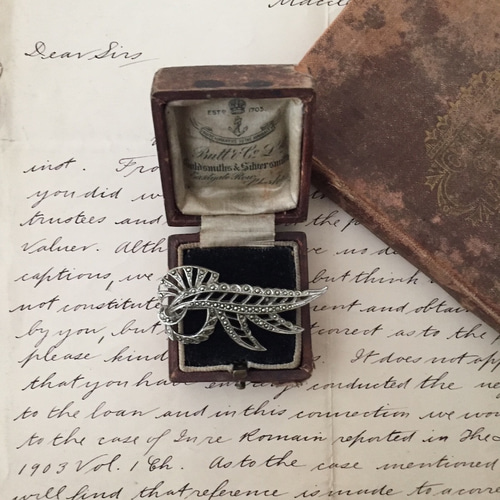 Dear Sirs
ESTD 1703
Butt & Co Ld
Goldsmiths & Silversmiths
inst. Fro
you did w
trustees and the p
Valuer. Alth ve us do
captions, we but think
not constitute ent and obtain
by you, but correct as to the f
please kind It does not app
that you have conducted the
to the loan and in this connection we wou
to the case of In re Romain reported in The
1903 Vol. 1 Ch. As to the case mentioned
will find that reference is made to a corr